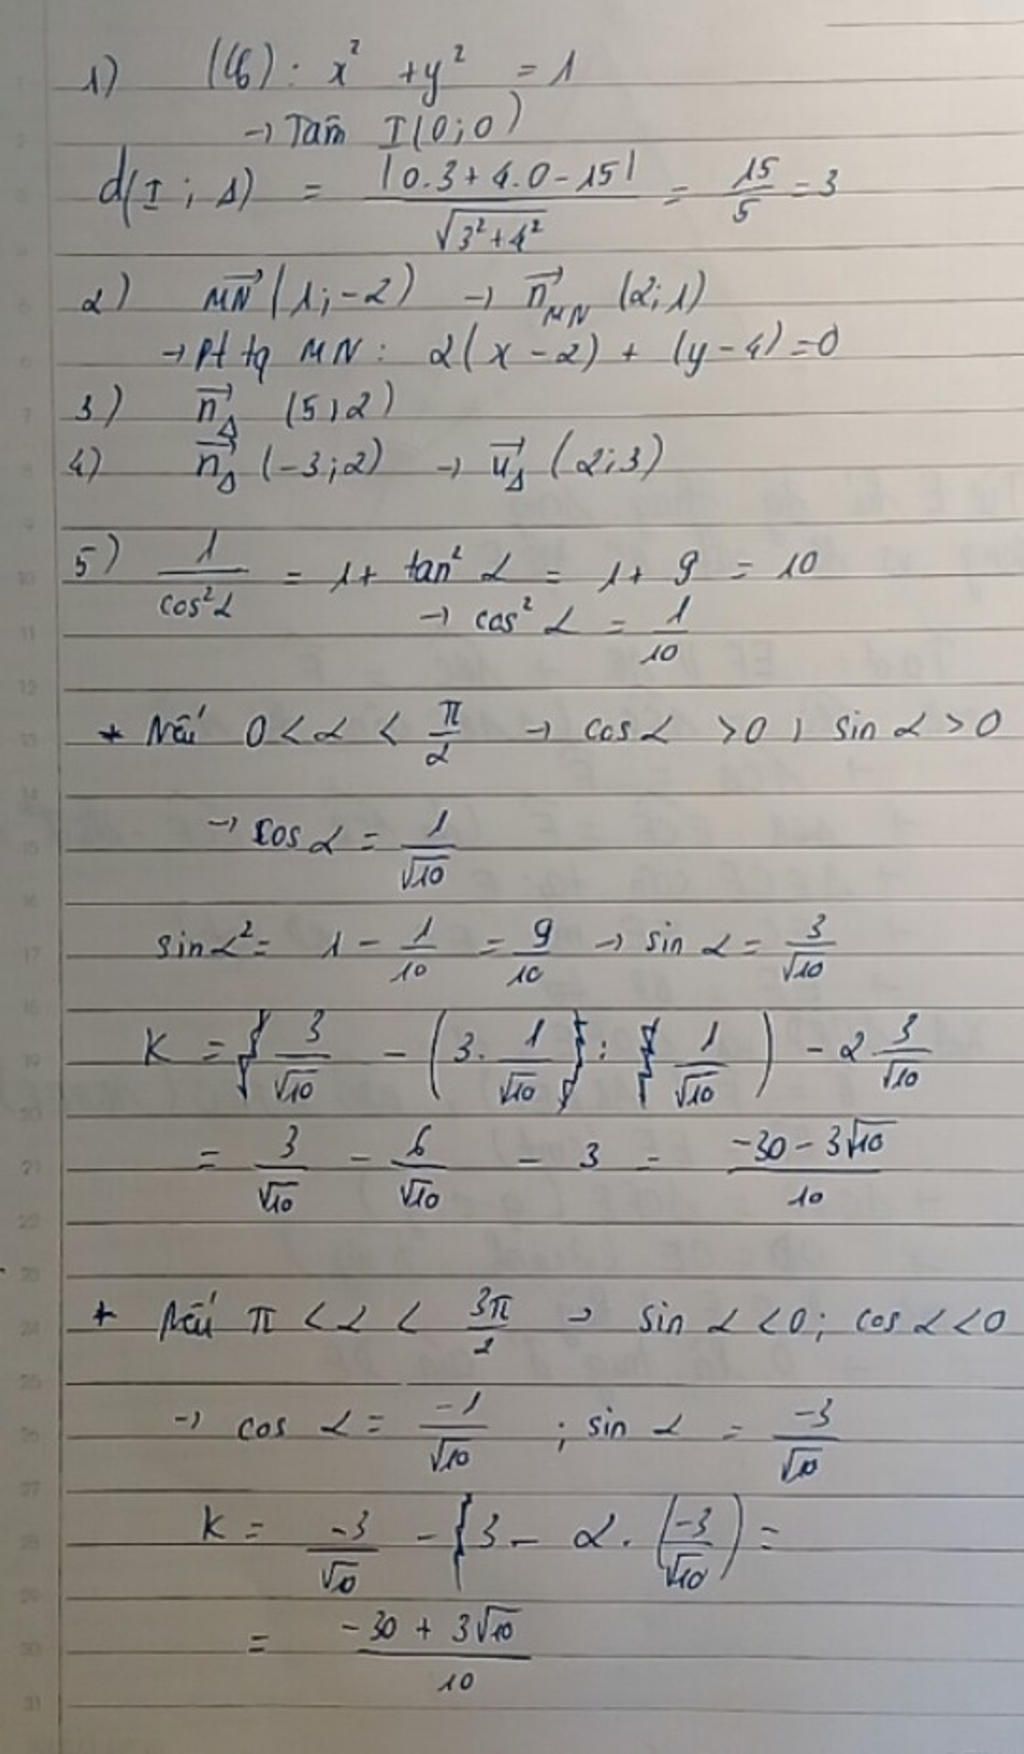 1) (C): x² + y² = 1
→ Tâm I(0;0)
d(I; Δ) = |0.3 + 4.0 - 15| / √(3² + 4²) = 15/5 = 3
2) MN→ (1; -2) → n→MN (2; 1)
→ Pt tq MN: 2(x - 2) + (y - 4) = 0
3) n→Δ (5; 2)
4) n→Δ (-3; 2) → u→Δ (2; 3)
5) 1/cos²α = 1 + tan²α = 1 + 9 = 10
→ cos²α = 1/10
* Nếu 0 < α < π/2 → cosα > 0; sinα > 0
→ cosα = 1/√10
sinα² = 1 - 1/10 = 9/10 → sinα = 3/√10
K = 3/√10 - (3. 1/√10 : 1/√10) - 2 3/√10
= 3/√10 - 6/√10 - 3 = (-30 - 3√10)/10
* Nếu π < α < 3π/2 → sinα < 0; cosα < 0
→ cosα = -1/√10 ; sinα = -3/√10
K = -3/√10 - 3 - 2. (-3/√10) =
= (-30 + 3√10)/10